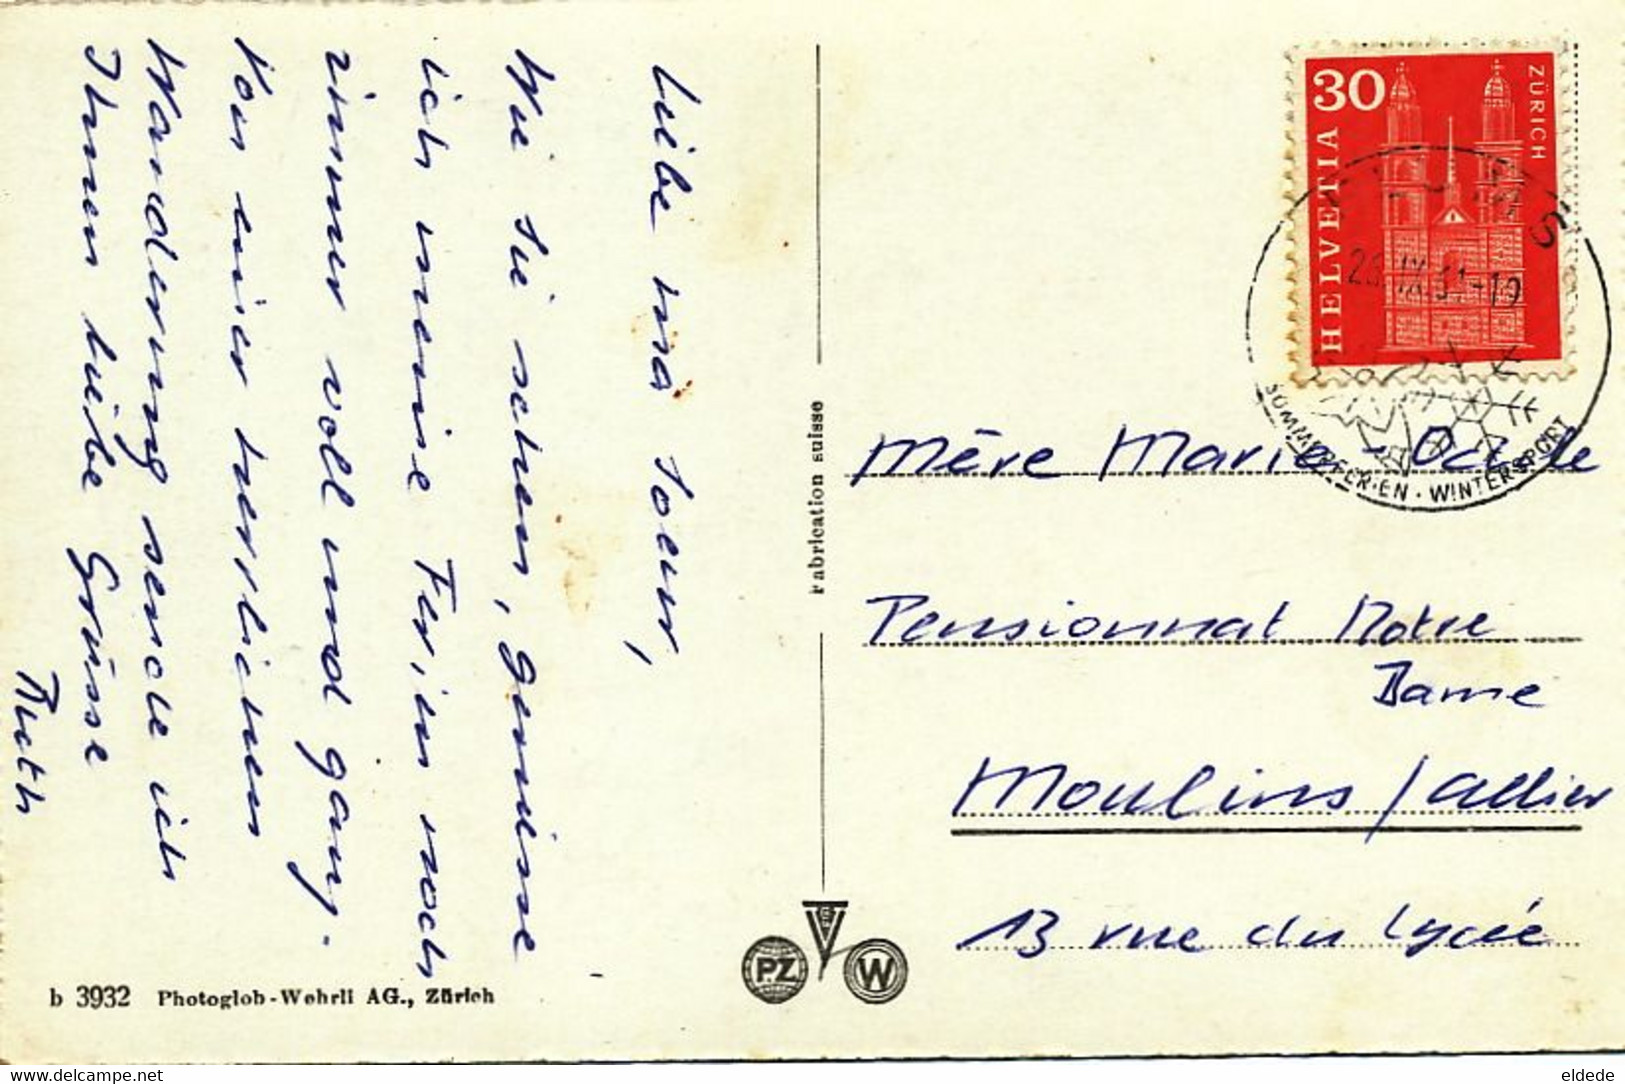 Liebe ma Soeur,
Wie Sie sehen, geniesse
ich meine Ferien noch
immer voll und ganz.
Von einer herrlichen
Wanderung sende ich
Ihnen liebe Grüsse
Ruth
b 3932 Photoglob-Wehrli AG., Zürich
Fabrication suisse
PZ
W
30
ZÜRICH
HELVETIA
IX
-19
SOMMERFERIEN · WINTERSPORT
Mère Marie-
Pensionnat Notre
Dame
Moulins / Allier
13 rue du Lycée
www.delcampe.net
eldede